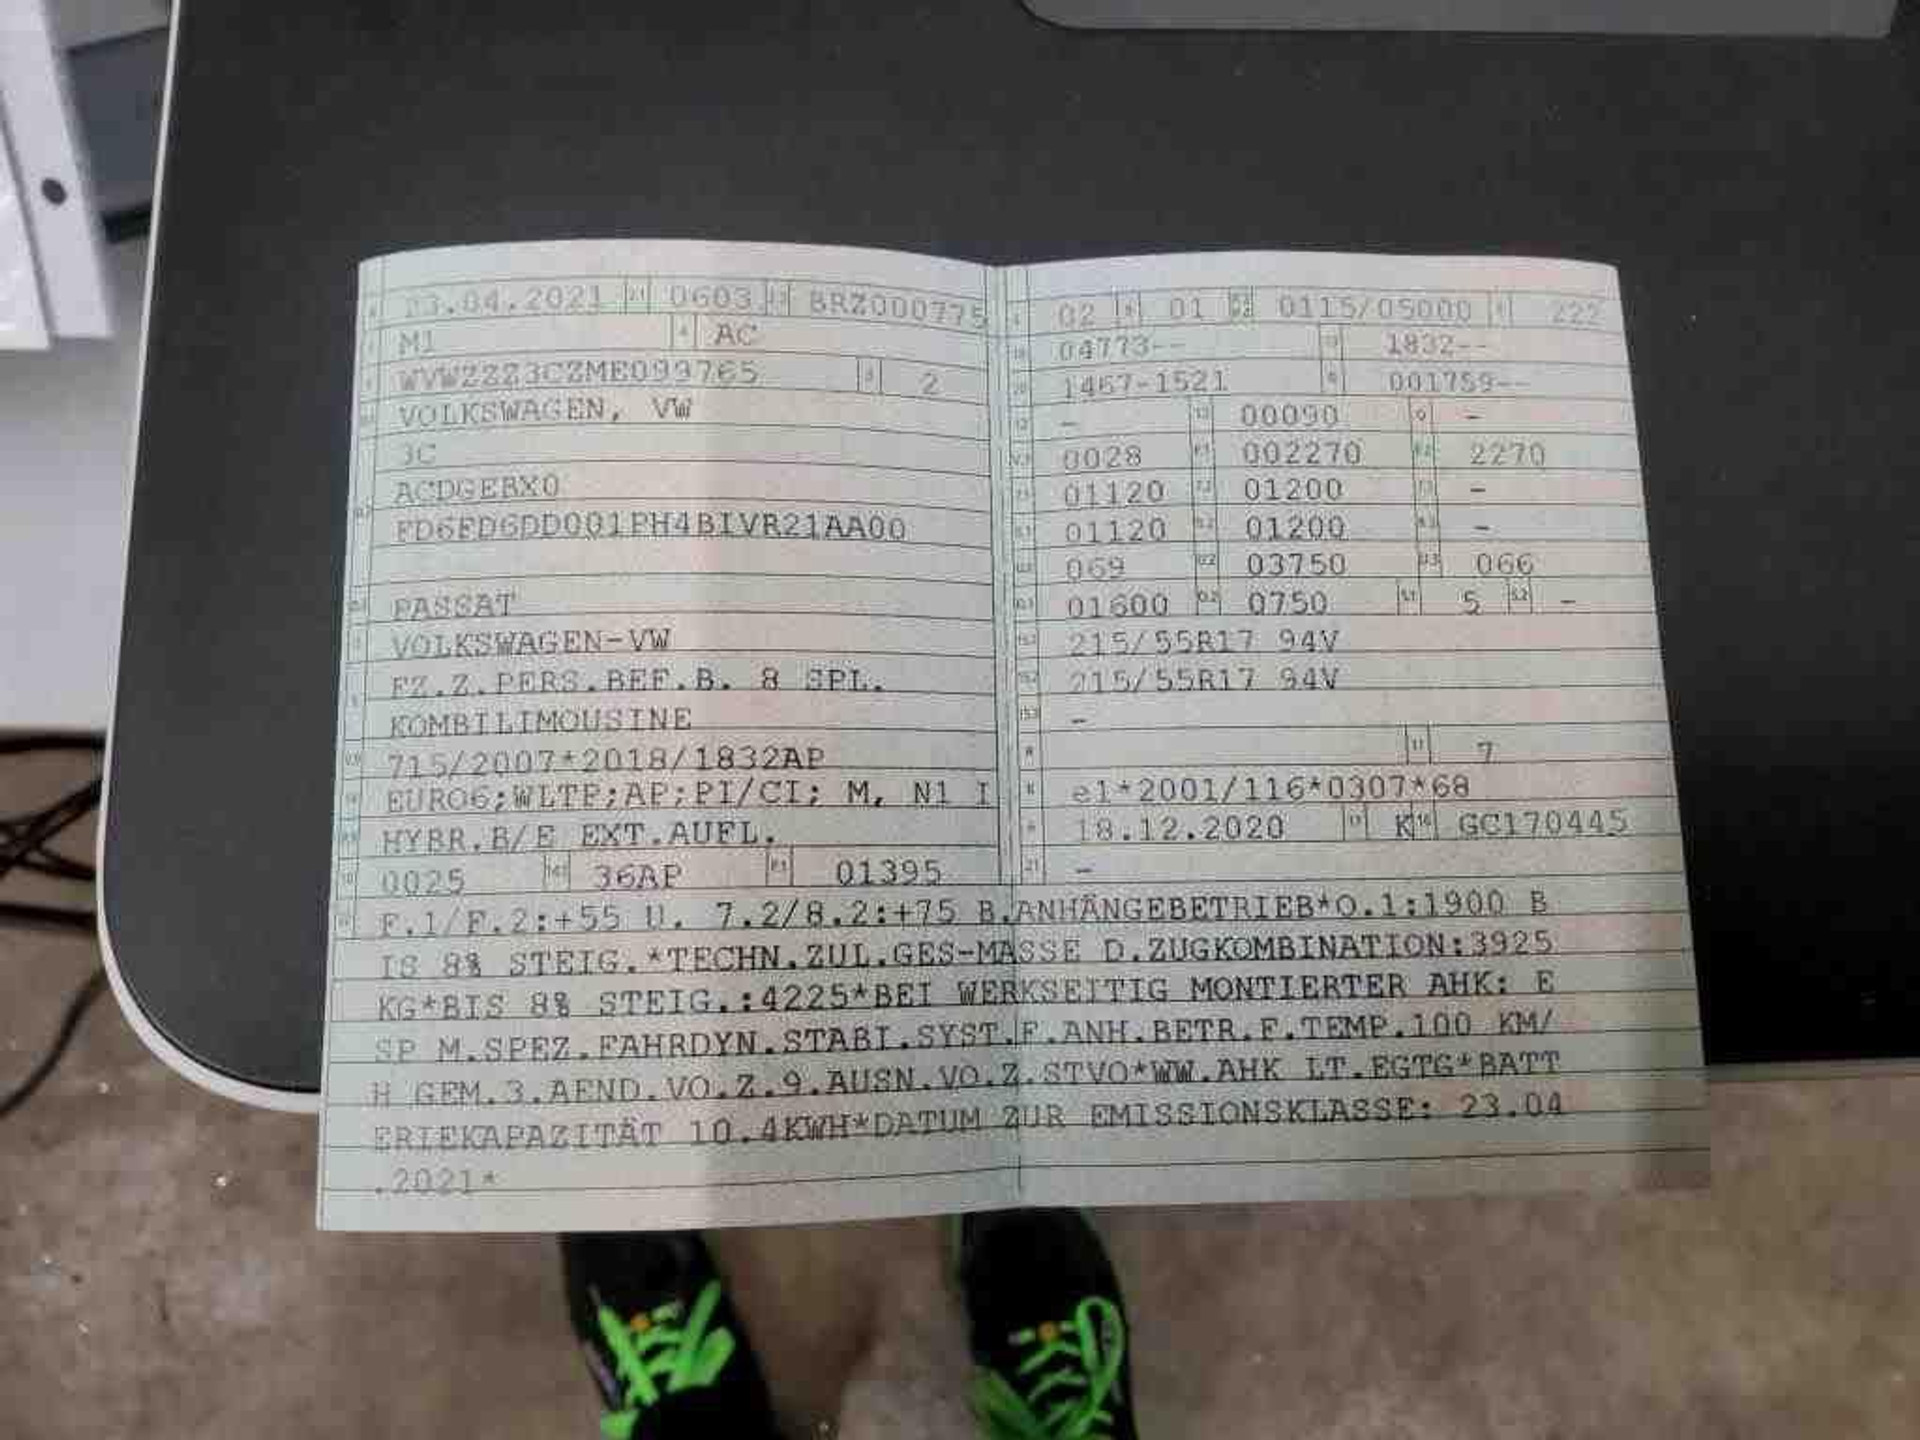 23.04.2021 2.1 0603 2.2 BRZ000775
M1 4 AC
WVWZZZ3CZME099765 3 2
VOLKSWAGEN, VW
3C
ACDGEBX0
FD6FD6DD001PH4BIVR21AA00
PASSAT
VOLKSWAGEN-VW
FZ.Z.PERS.BEF.B. 8 SPL.
KOMBILIMOUSINE
715/2007*2018/1832AP
EURO6;WLTP;AP;PI/CI; M, N1 I
HYBR.B/E EXT.AUFL.
0025 14.1 36AP P.1 01395
02 9 01 P.2 P.4 0115/05000 T 222
04773-- 19 1832--
1467-1521 G 001759--
- 13 00090 Q -
0028 F.1 002270 F.2 2270
01120 7.2 01200 7.3 -
01120 8.2 01200 8.3 -
069 U.2 03750 U.3 066
01600 O.2 0750 S.1 5 S.2 -
215/55R17 94V
215/55R17 94V
-
11 7
e1*2001/116*0307*68
18.12.2020 17 K 16 GC170445
21 -
F.1/F.2:+55 U. 7.2/8.2:+75 B.ANHÄNGEBETRIEB*O.1:1900 B
IS 8% STEIG.*TECHN.ZUL.GES-MASSE D.ZUGKOMBINATION:3925
KG*BIS 8% STEIG.:4225*BEI WERKSEITIG MONTIERTER AHK: E
SP M.SPEZ.FAHRDYN.STABI.SYST.F.ANH.BETR.F.TEMP.100 KM/
H GEM.3.AEND.VO.Z.9.AUSN.VO.Z.STVO*WW.AHK LT.EGTG*BATT
ERIEKAPAZITÄT 10.4KWH*DATUM ZUR EMISSIONSKLASSE: 23.04
.2021*